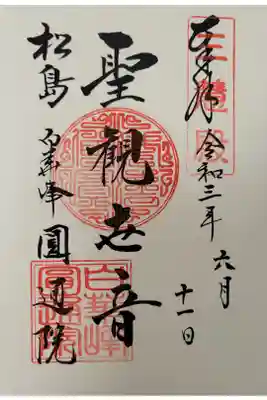 奉拝
令和三年
六月
十一日
聖観世音
松島
白華峰
圓通院
三慧殿